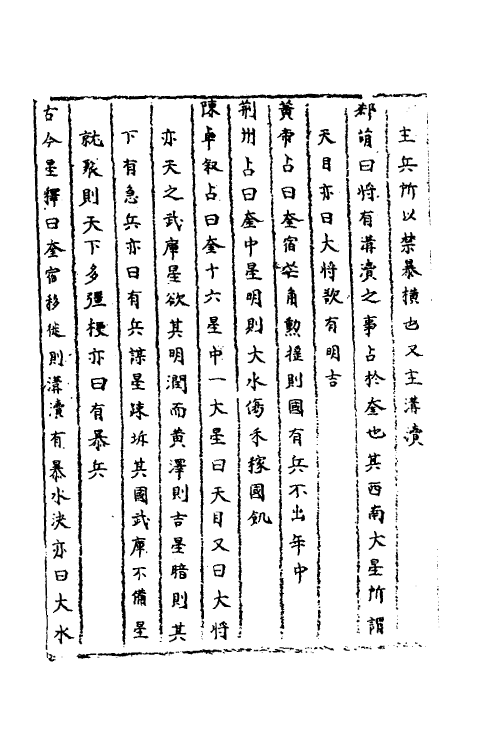 主兵所以禁暴橫也又主溝瀆
郄萌曰将有溝瀆之事占於奎也其西南大星所謂
天目亦曰大将欲有明吉
黄帝占曰奎宿芒角動揺則國有兵不出年中
荆州占曰奎中星明則大水傷禾稼國飢
陳卓叙占曰奎十六星中一大星曰天目又曰大将
亦天之武庫星欲其明潤而黄澤則吉星暗則其
下有急兵亦曰有兵謀星踈坼其國武庫不備星
就聚則天下多彊梗亦曰有暴兵
古今星釋曰奎宿移徙則溝瀆有暴水決亦曰大水